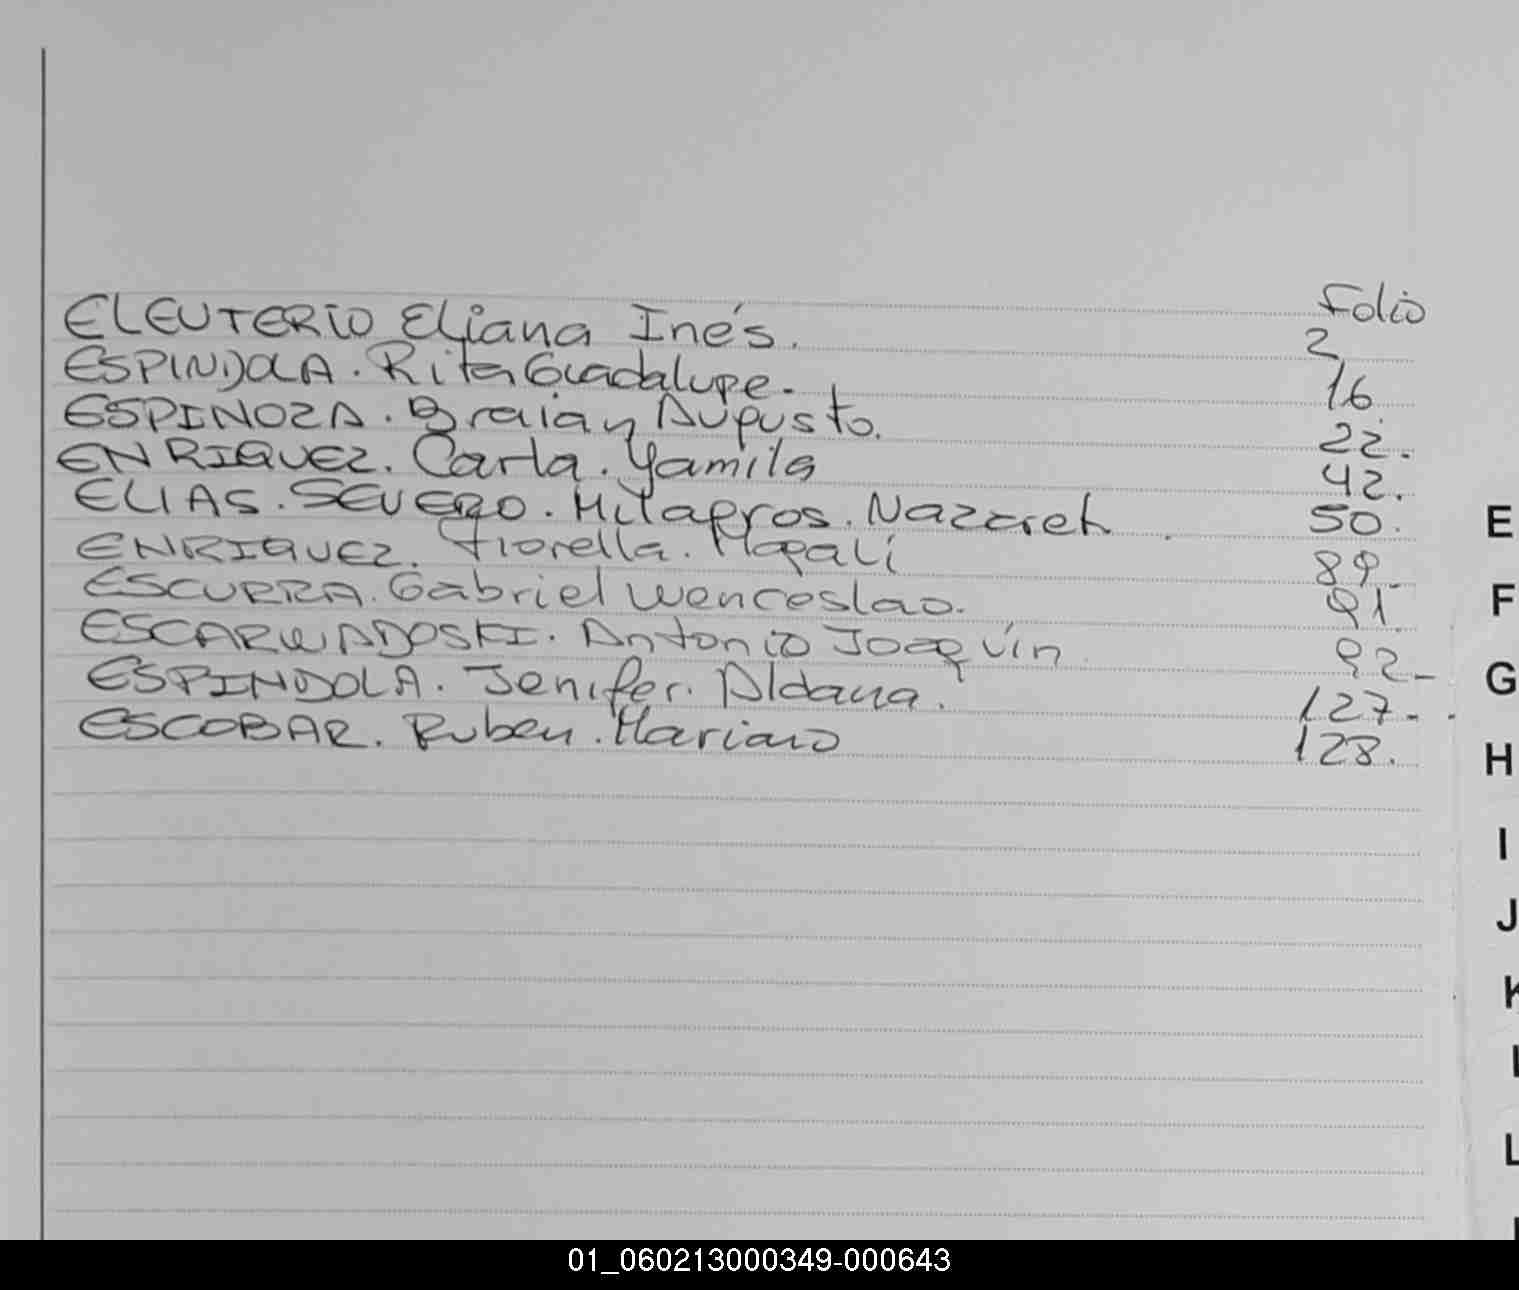 Folio
ELEUTERIO Eliana Inés. 2
ESPINDOLA. Rita Guadalupe. 16
ESPINOZA. Braian Augusto. 22.
ENRIQUEZ. Carla. Yamila 42.
ELIAS. SEVERO. Milagros. Nazareh. 50.
ENRIQUEZ. Fiorella. Magali 89.
ESCURRA. Gabriel Wenceslao. 91
ESCARWADOSKI. Antonio Joaquín 92-
ESPINDOLA. Jenifer. Aldana. 127-.
ESCOBAR. Ruben. Mariano 128.
E
F
G
H
I
J
K
L
01_060213000349-000643